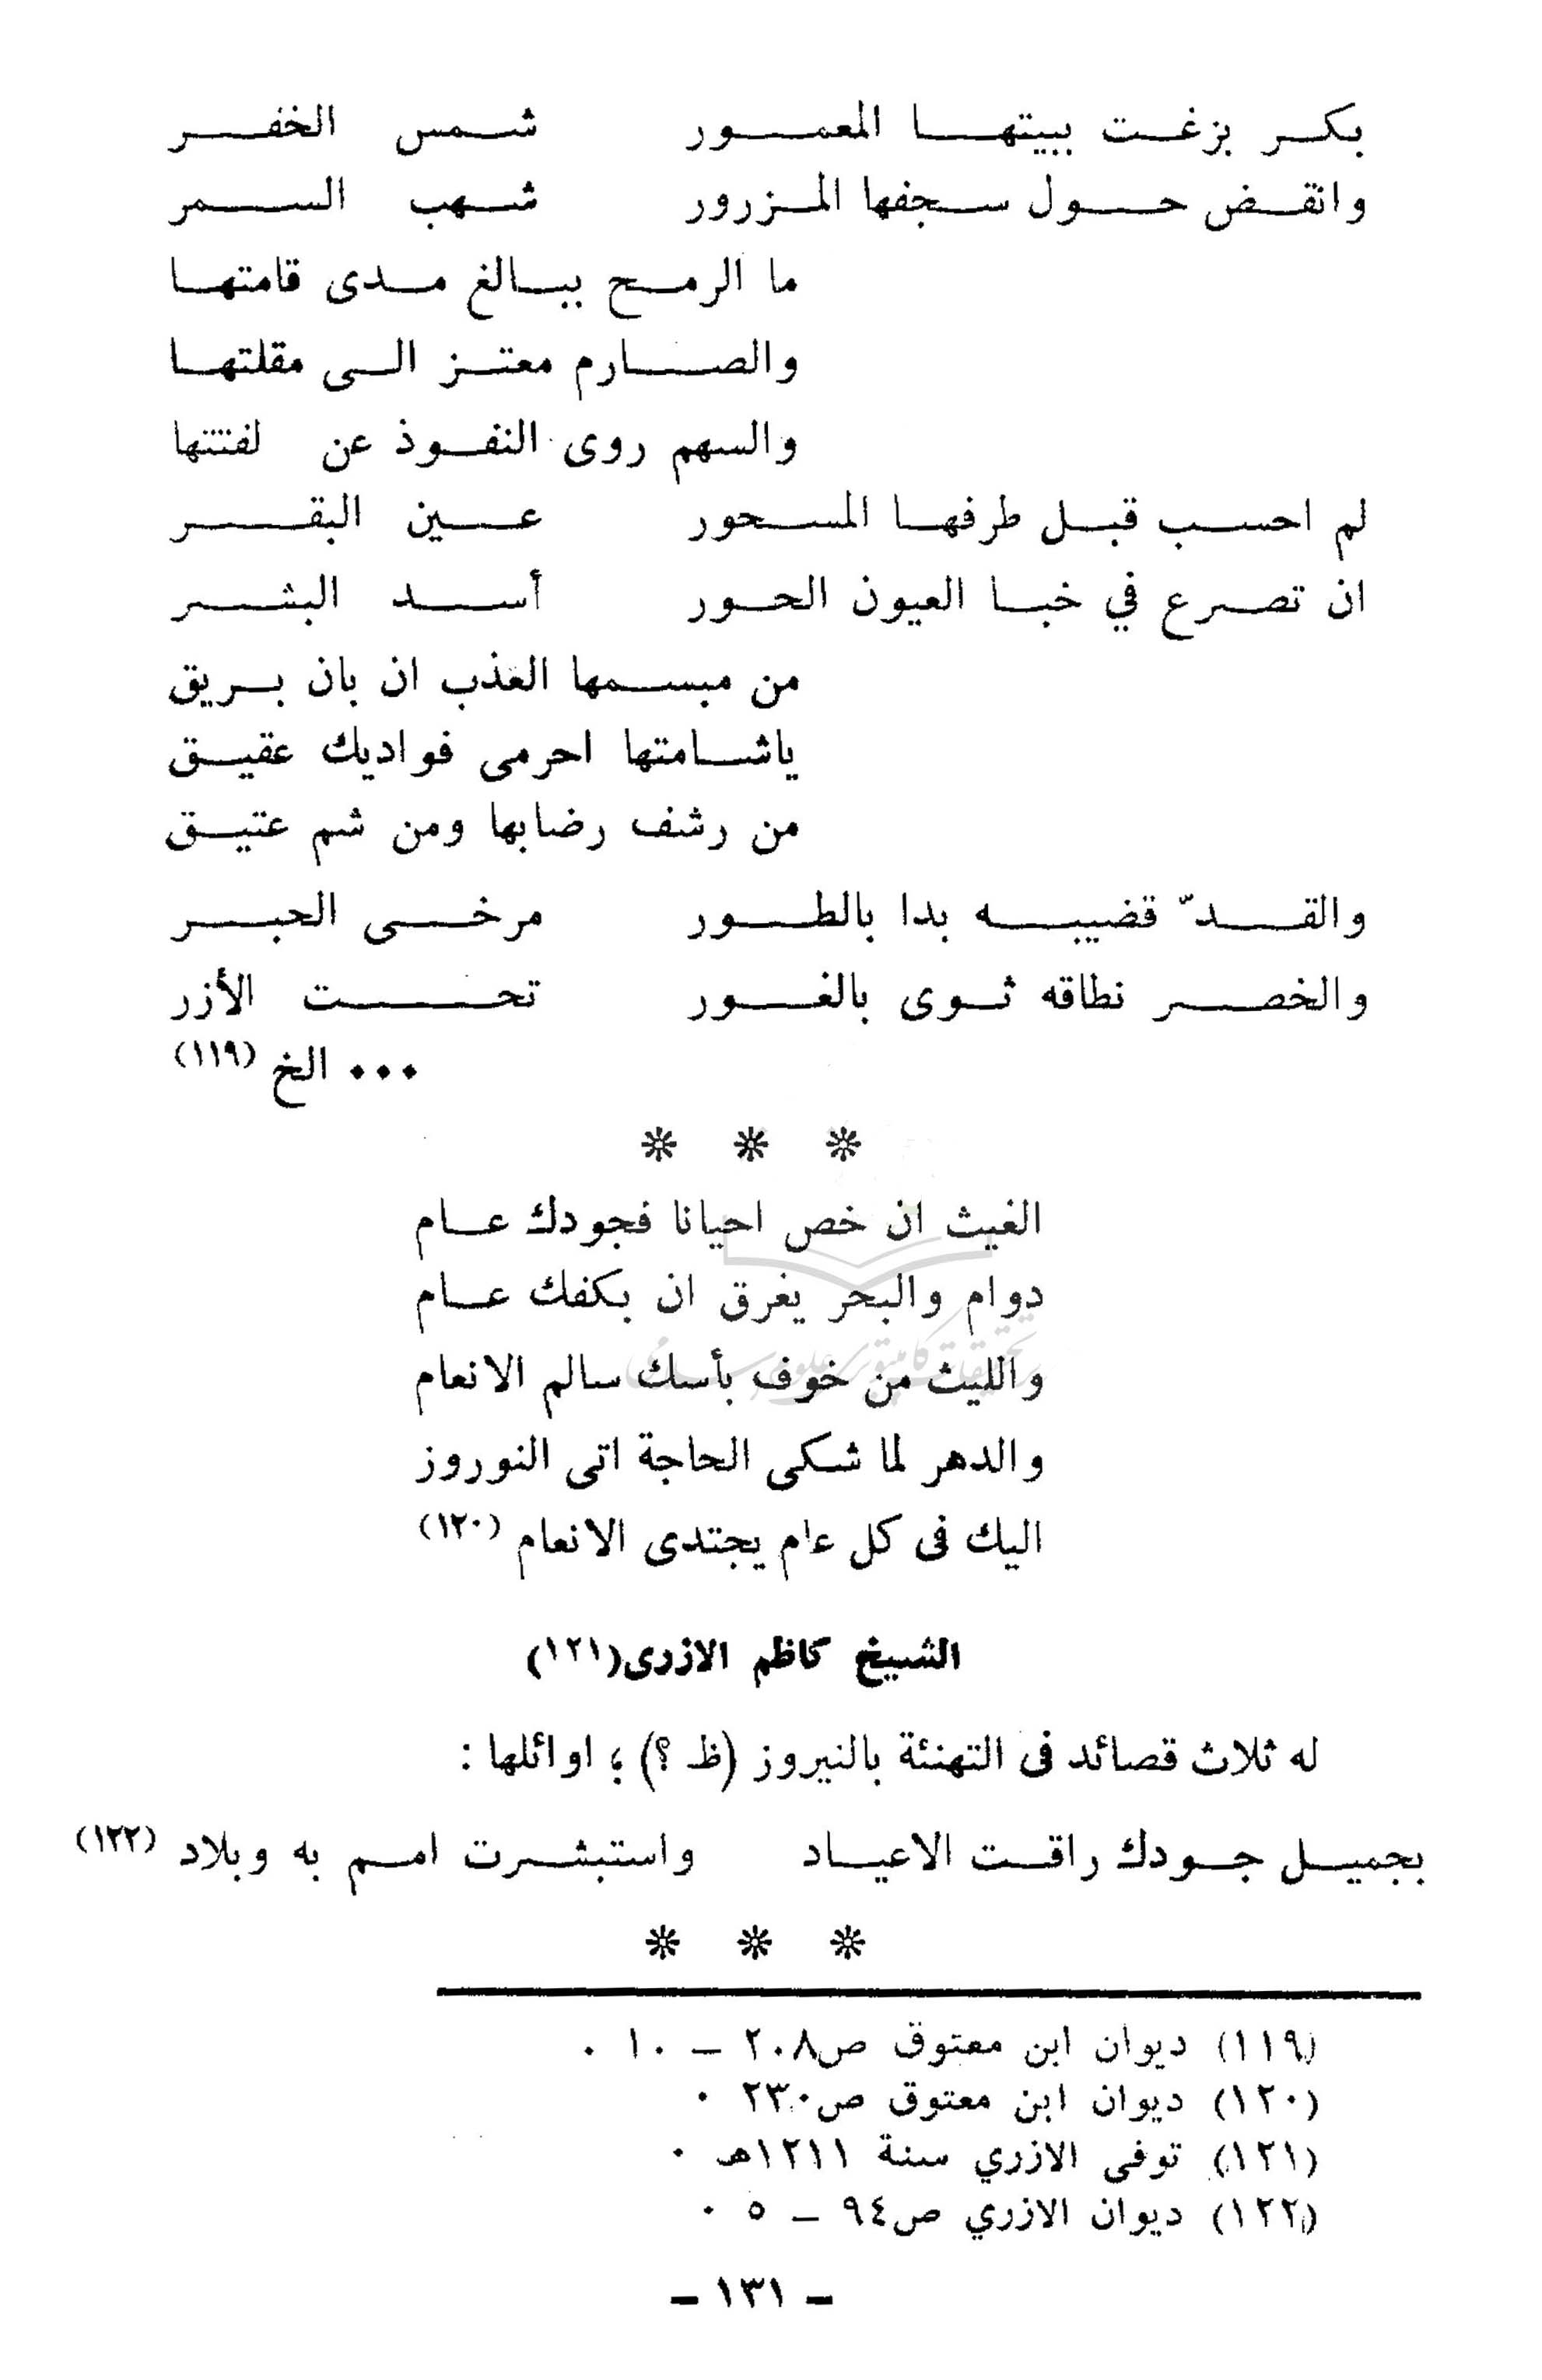 بكر بزغت ببيتها المعمور شمس الخفر
وانقض حول سجفها المزرور شهب السمر
ما الرمح ببالغ مدى قامتها
والصارم معتز الى مقلتها
والسهم روى النفوذ عن لفتتها
لم احسب قبل طرفها المسحور عين البقر
ان تصرع في خبا العيون الحور أسد البشر
من مبسمها العذب ان بان بريق
ياشامتها احرمى فواديك عقيق
من رشف رضابها ومن شم عتيق
والقدّ قضيبه بدا بالطور مرخى الحبر
والخصر نطاقه ثوى بالغور تحت الأزر
٠٠٠ الخ (١١٩)
* * *
الغيث ان خص احيانا فجودك عام
دوام والبحر يغرق ان بكفك عام
والليث من خوف بأسك سالم الانعام
والدهر لما شكى الحاجة اتى النوروز
اليك فى كل عام يجتدى الانعام (١٢٠)
الشيخ كاظم الازرى(١٢١)
له ثلاث قصائد فى التهنئة بالنيروز (ظ ؟) ؛ اوائلها :
بجميل جودك راقت الاعياد واستبشرت امم به وبلاد (١٢٢)
* * *
(١١٩) ديوان ابن معتوق ص٢٠٨ – ١٠ ٠
(١٢٠) ديوان ابن معتوق ص٢٣٠ ٠
(١٢١) توفى الازري سنة ١٢١١هـ ٠
(١٢٢) ديوان الازري ص٩٤ – ٥ ٠
– ١٣١ –